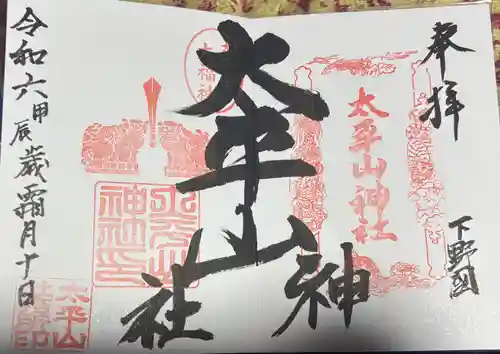 奉拝
下野國
太平山神社
太平山
神社
令和六甲辰歳霜月十日
太平山